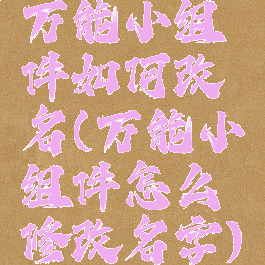 万能小组
件如何改
名(万能小
组件怎么
修改名字)